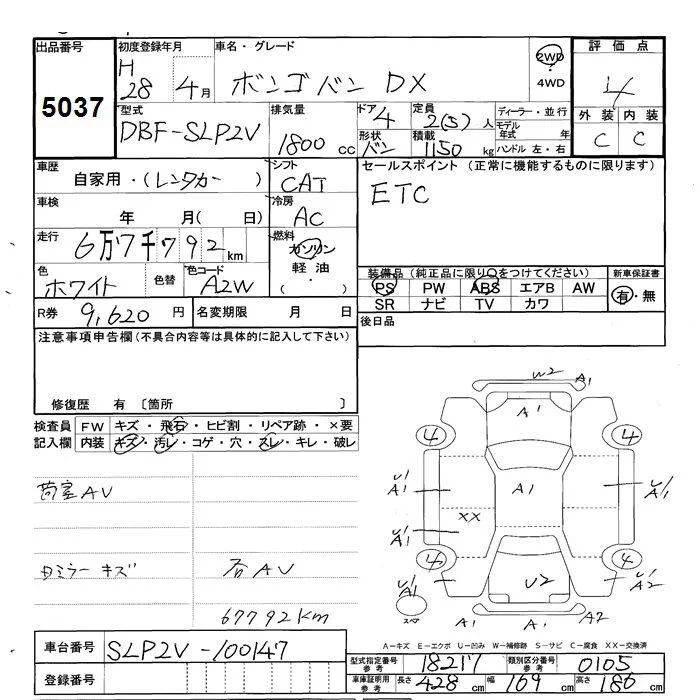 出品番号 初度登録年月 車名・グレード 2WD 評価点
5037 H 28 4月 ボンゴバン DX 4WD 4
型式 排気量 ドア 定員 ディーラー・並行 外装 内装
DBF-SLP2V 1800cc 4 2(5)人 モデル年式 年 C C
形状 積載 ハンドル 左・右
バン 1150kg
車歴 シフト セールスポイント (正常に機能するものに限ります)
自家用・(レンタカー) CAT ETC
車検 冷房
年 月(日) AC
走行 燃料
6万7千792km ガソリン
軽油
(・)
色 色替 色コード 装備品(純正品に限り○をつけてください) 新車保証書
ホワイト A2W PS PW ABS エアB AW 有・無
SR ナビ TV カワ
R券 9,620円 名変期限 月 日 後日品
注意事項申告欄(不具合内容等は具体的に記入して下さい)
修復歴 有 〔箇所 〕
検査員 FW キズ・飛石・ヒビ割・リペア跡・×要
記入欄 内装 キズ・汚レ・コゲ・穴・スレ・キレ・破レ
荷室AV
ミラーキズ
AV
67792km
W2 A1
A1
4 4
A1 A1 A1
XX
A1
4 4
A1 U2 A2
A1 A1 A2
A=キズ E=エクボ U=凹み W=補修跡 S=サビ C=腐食 XX=交換済
車台番号 SLP2V-100147
登録番号
型式指定番号 参考 18217 類別区分番号 参考 0105
車庫証明用 参考 長さ 428cm 幅 169cm 高さ 186cm